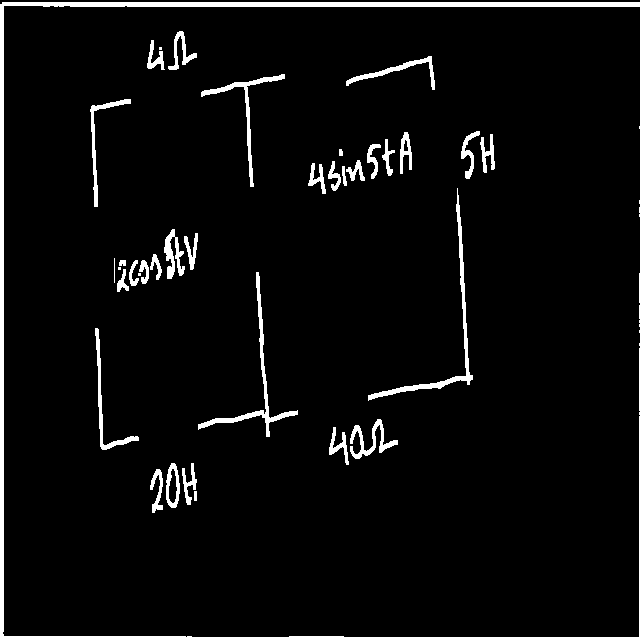 4Ω
4sin5tA
5H
12cos5tV
40Ω
20H